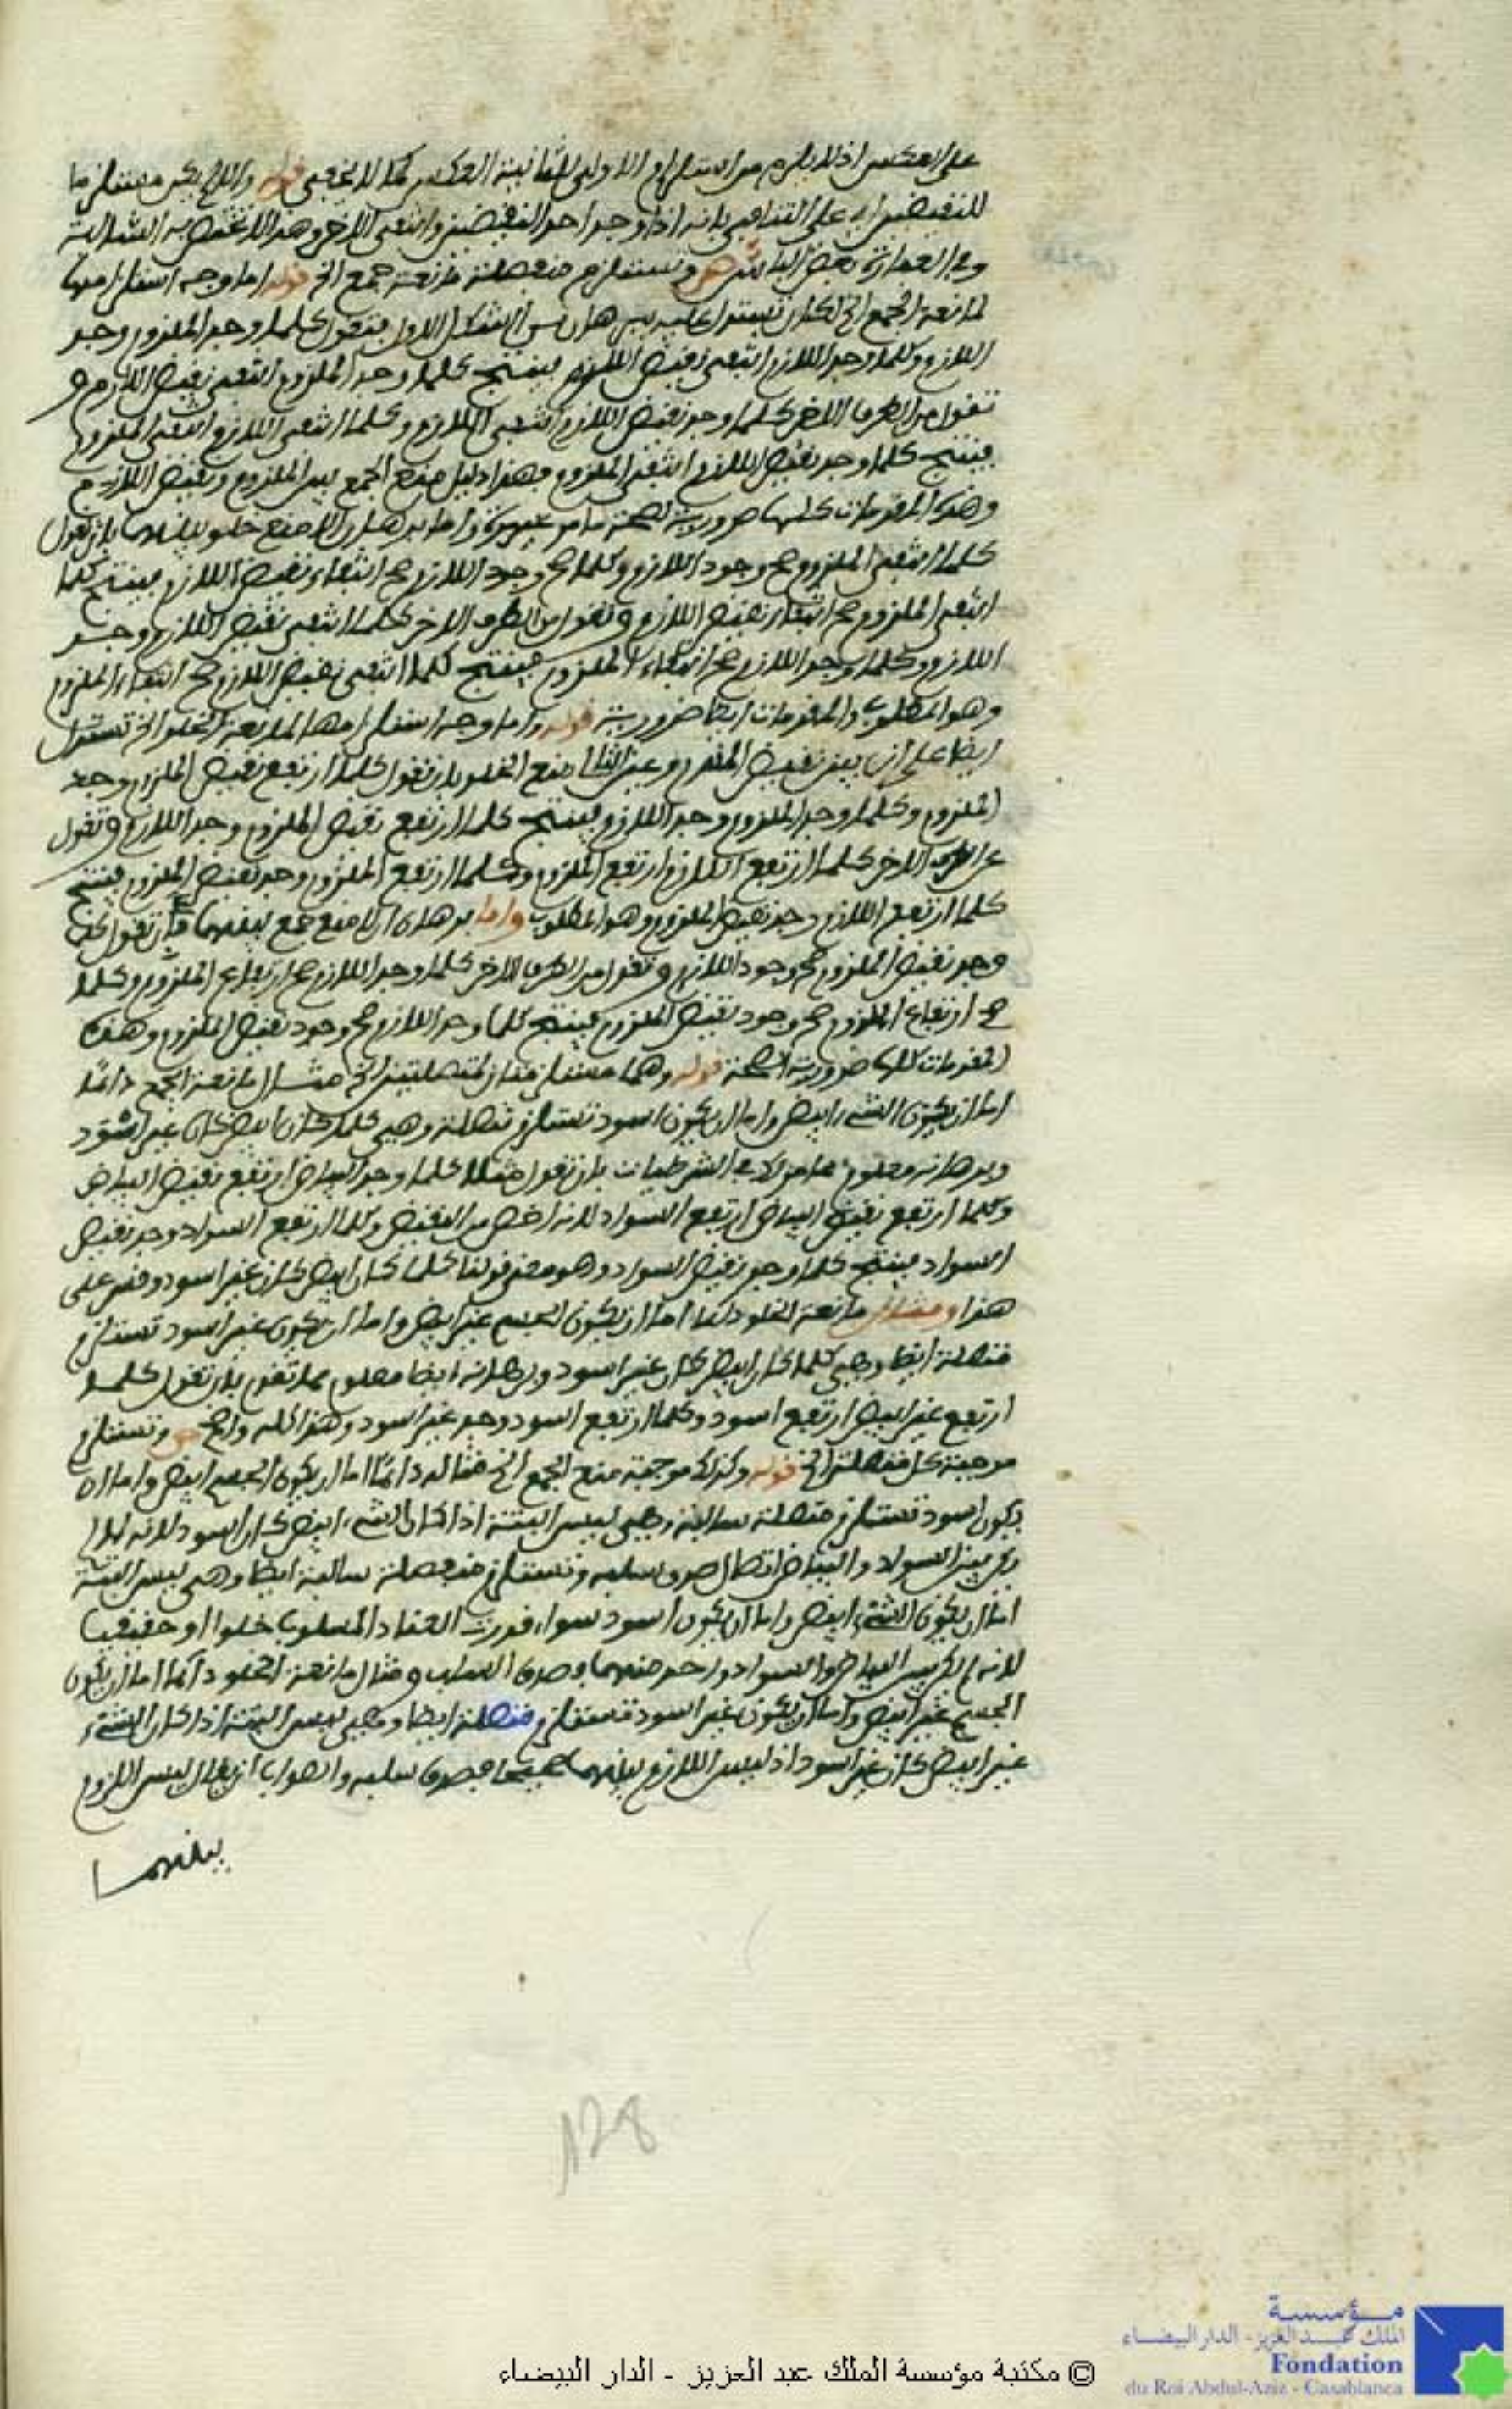 على العكس اذ لا يلزم من استلزام الاولى للثانية العكس كما لا يخفى قوله والا لم يكن مستلزما
للنقيضين اي على التنافي بانه اذا وجد احد النقيضين وانتفى الاخر وهذا لا تختص به السالبة
وفي العبارة بعض ص وتستلزم منفصلة مانعة جمع الخ قوله اما وجه استلزامها
لمانعة الجمع الخ لك ان تستدل عليه ببرهان من الشكل الاول فتقول كلما وجد الملزوم وجد
اللازم وكلما وجد اللازم انتفى نقيض اللازم ينتج كلما وجد الملزوم انتفى نقيض اللازم و
تقول من الطرف الاخر كلما وجد نقيض اللازم انتفى اللازم وكلما انتفى اللازم انتفى الملزوم
فينتج كلما وجد نقيض اللازم انتفى الملزوم وهذا دليل منع الجمع بين الملزوم ونقيض اللازم
وهذه المقدمات كلها ضرورية لصحة ما مر واما برهان ان لا منع خلو بينهما بان تقول
كلما انتفى الملزوم صح وجود اللازم وكلما صح وجود اللازم صح انتفاء نقيض اللازم فينتج كلما
انتفى الملزوم صح انتفاء نقيض اللازم وتقول من الطرف الاخر كلما انتفى نقيض اللازم وجد
اللازم وكلما وجد اللازم صح انتفاء الملزوم فينتج كلما انتفى نقيض اللازم صح انتفاء الملزوم
وهو المطلوب والمقدمات ايضا ضرورية قوله واما وجه استلزامها لمانعة الخلو الخ تستدل
ايضا على ان بين نقيض المقدم وعين التالي منع الخلو بان تقول كلما ارتفع نقيض الملزوم وجد
الملزوم وكلما وجد الملزوم وجد اللازم فينتج كلما ارتفع نقيض الملزوم وجد اللازم وتقول
من الطرف الاخر كلما ارتفع اللازم ارتفع الملزوم وكلما ارتفع الملزوم وجد نقيض الملزوم فينتج
كلما ارتفع اللازم وجد نقيض الملزوم وهو المطلوب واما برهان ان لا منع جمع بينهما فأن تقول كلما
وجد نقيض الملزوم صح وجود اللازم وتقول من الطرف الاخر كلما وجد اللازم صح ارتفاع الملزوم وكلما
صح ارتفاع الملزوم صح وجود نقيض الملزوم فينتج كلما وجد اللازم صح وجود نقيض الملزوم وهذه
المقدمات كلها ضرورية الصحة قوله وهما مستلزمتان لمتصلتين الخ مثال مانعة الجمع دائما
اما ان يكون الشيء ابيض واما ان يكون اسود تستلزم متصلة وهي كلما كان ابيض كان غير اسود
وبرهانه معلوم مما مر لك في الشرطيات بان تقول مثلا كلما وجد البياض ارتفع نقيض البياض
وكلما ارتفع نقيض البياض ارتفع السواد لانه اخص من النقيض وكلما ارتفع السواد وجد نقيض
السواد فينتج كلما وجد نقيض السواد وهو معنى قولنا كلما كان ابيض كان غير اسود وقس على
هذا ومثال مانعة الخلو دائما اما ان يكون الجسم غير ابيض واما ان يكون غير اسود تستلزم
متصلة ايضا وهي كلما كان ابيض كان غير اسود وبرهانه ايضا معلوم مما تقدم بان تقول كلما
ارتفع غير ابيض ارتفع اسود وكلما ارتفع اسود وجد غير اسود وهذا كله واضح ص وتستلزم
موجبة كل منفصلة الخ قوله وكذلك موجبة منع الجمع الخ مثاله دائما اما ان يكون الجسم ابيض واما ان
يكون اسود تستلزم متصلة سالبة وهي ليس البتة اذا كان الشيء ابيض كان اسود لانه لما لم
يكن بين السواد والبياض اتصال صدق سلبه وتستلزم منفصلة سالبة ايضا وهي ليس البتة
اما ان يكون الشيء ابيض واما ان يكون اسود سواء قدرت العناد المسلوب خلوا او حقيقيا
لانه لم يكن بين البياض والسواد واحد منهما وصدق السلب ومثال مانعة الخلو دائما اما ان يكون
الجسم غير ابيض واما ان يكون غير اسود تستلزم متصلة ايضا وهي ليس البتة اذا كان الشيء
غير ابيض كان غير اسود اذ ليس اللازم بينهما صحيحا فصدق سلبه والصواب ان يقال ليس اللزوم
بينهما
128
مؤسسة
الملك عبد العزيز - الدار البيضاء
Fondation
du Roi Abdul-Aziz - Casablanca
© مكتبة مؤسسة الملك عبد العزيز - الدار البيضاء